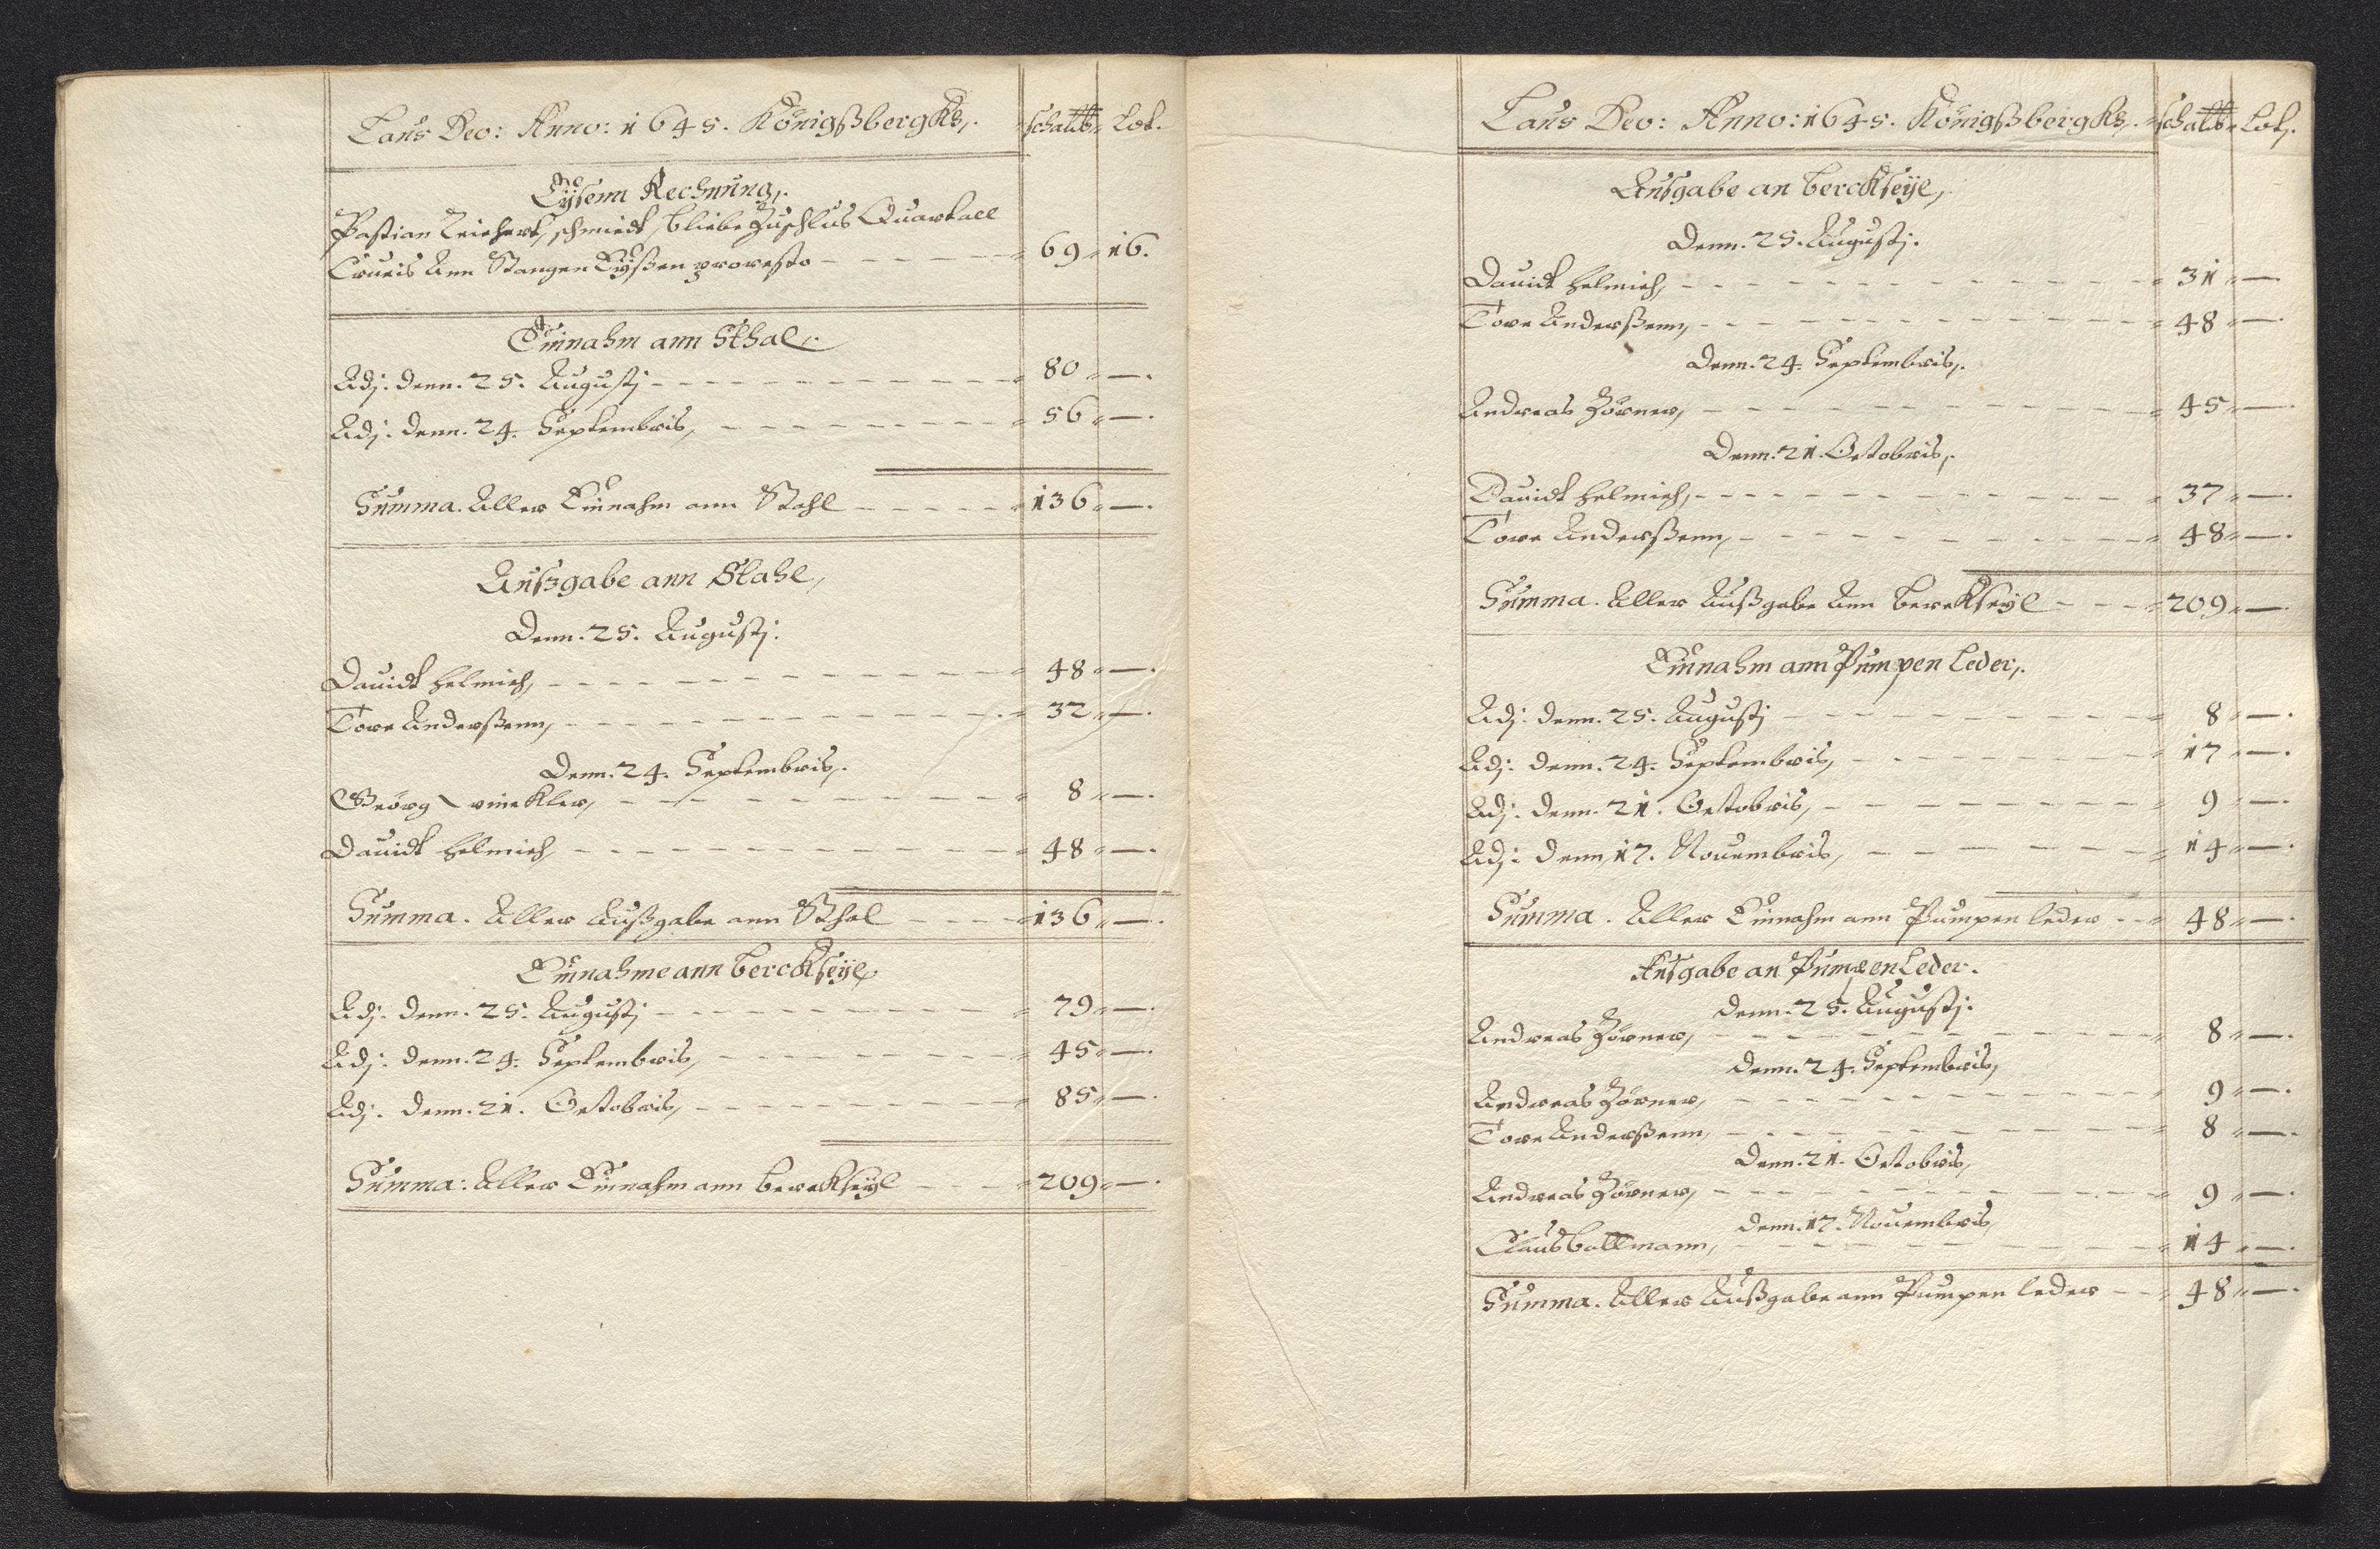 Laus Deo: Anno: 1645. Königßbergks,. schaltt Lot.
Eysenn Rechnung,.
Bastian Reichert, schmiedt, bliebe Zuschlus Quartall
Crucis Ann Stangen Eyßen pro resto - - - - - - 69 16.
Einnahm ann Sthal,.
Adj. denn. 25. Augustj - - - - - - 80 —.
Adj. denn. 24. Septembris, - - - - - - 56 —.
Summa. Aller Einnahm ann Stahl - - - - - 136 —.
Außgabe ann Stahl,
Denn. 25. Augustj.
Dauidt Helmich, - - - - - - 48 —.
Tore Anderßenn, - - - - - - 32 —.
Denn. 24. Septembris,.
Geörg winckler, - - - - - - 8 —.
Dauidt Helmich, - - - - - - 48 —.
Summa. Aller Außgabe ann Sthal - - - - 136 —.
Einnahme ann berckseyl,
Adj. denn. 25. Augustj - - - - - - 79 —.
Adj. denn. 24. Septembris, - - - - - - 45 —.
Adj. denn. 21. Octobris, - - - - - - 85 —.
Summa: Aller Einnahm ann berckseyl - - - 209 —.
Laus Deo: Anno: 1645. Königßbergks,. schaltt Lot,.
Ausgabe an berckseyl,
Denn. 25. Augustj.
Dauidt Helmich, - - - - - - 31 —.
Tore Anderßenn, - - - - - - 48 —.
Denn. 24. Septembris,.
Andreas Zörner, - - - - - - 45 —.
Denn. 21. Octobris,.
Dauidt Helmich, - - - - - - 37 —.
Tore Anderßenn, - - - - - - 48 —.
Summa. Aller Außgabe Ann berckseyl - - - 209 —.
Einnahm ann Pumpen Leder,.
Adj. denn. 25. Augustj - - - - - - 8 —.
Adj. denn. 24. Septembris, - - - - - - 17 —.
Adj. denn. 21. Octobris, - - - - - - 9 —.
Adj. denn, 17. Nouembris, - - - - - - 14 —.
Summa. Aller Einnahm ann Pumpen leder - - 48 —.
Ausgabe an Pumpen Leder.
Denn. 25. Augustj.
Andreas Zörner, - - - - - - 8 —.
Denn. 24. Septembris,
Andreas Zörner, - - - - - - 9 —.
Tore Anderßenn, - - - - - - 8 —.
Denn. 21. Octobris,
Andreas Zörner, - - - - - - 9 —.
denn. 17. Nouembris,
Claus bottmann, - - - - - - 14 —.
Summa. Aller Außgabe ann Pumpen leder - - 48 —.